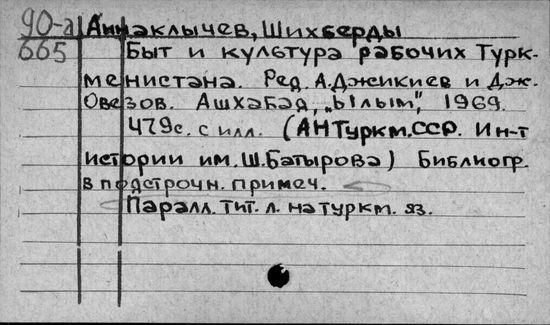 90-а Аннаклычев, Шихберды
665 Быт и культура рабочих Турк-
менистана. Ред. А.Джикиев и Дж.
Овезов. Ашхабад, „Ылым", 1969.
479с. с илл. (АН Туркм.ССР. Ин-т
истории им. Ш.Батырова) Библиогр.
в подстрочн. примеч.
Паралл. тит. л. на туркм. яз.